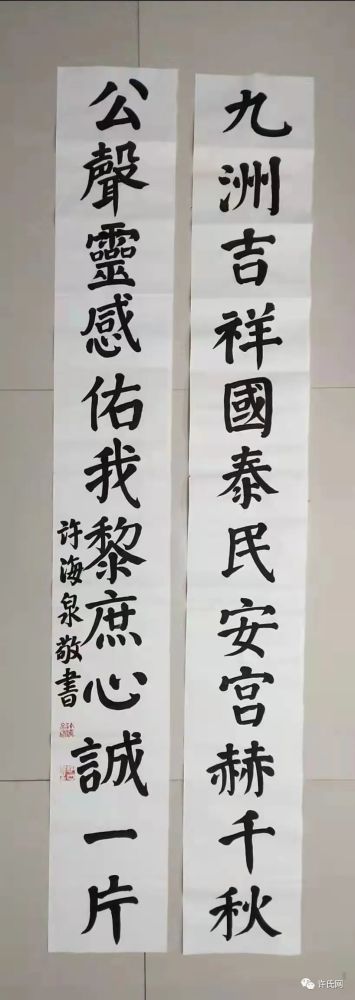 九洲吉祥國泰民安宫赫千秋
公聲靈感佑我黎庶心誠一片
许海泉敬書
许氏网